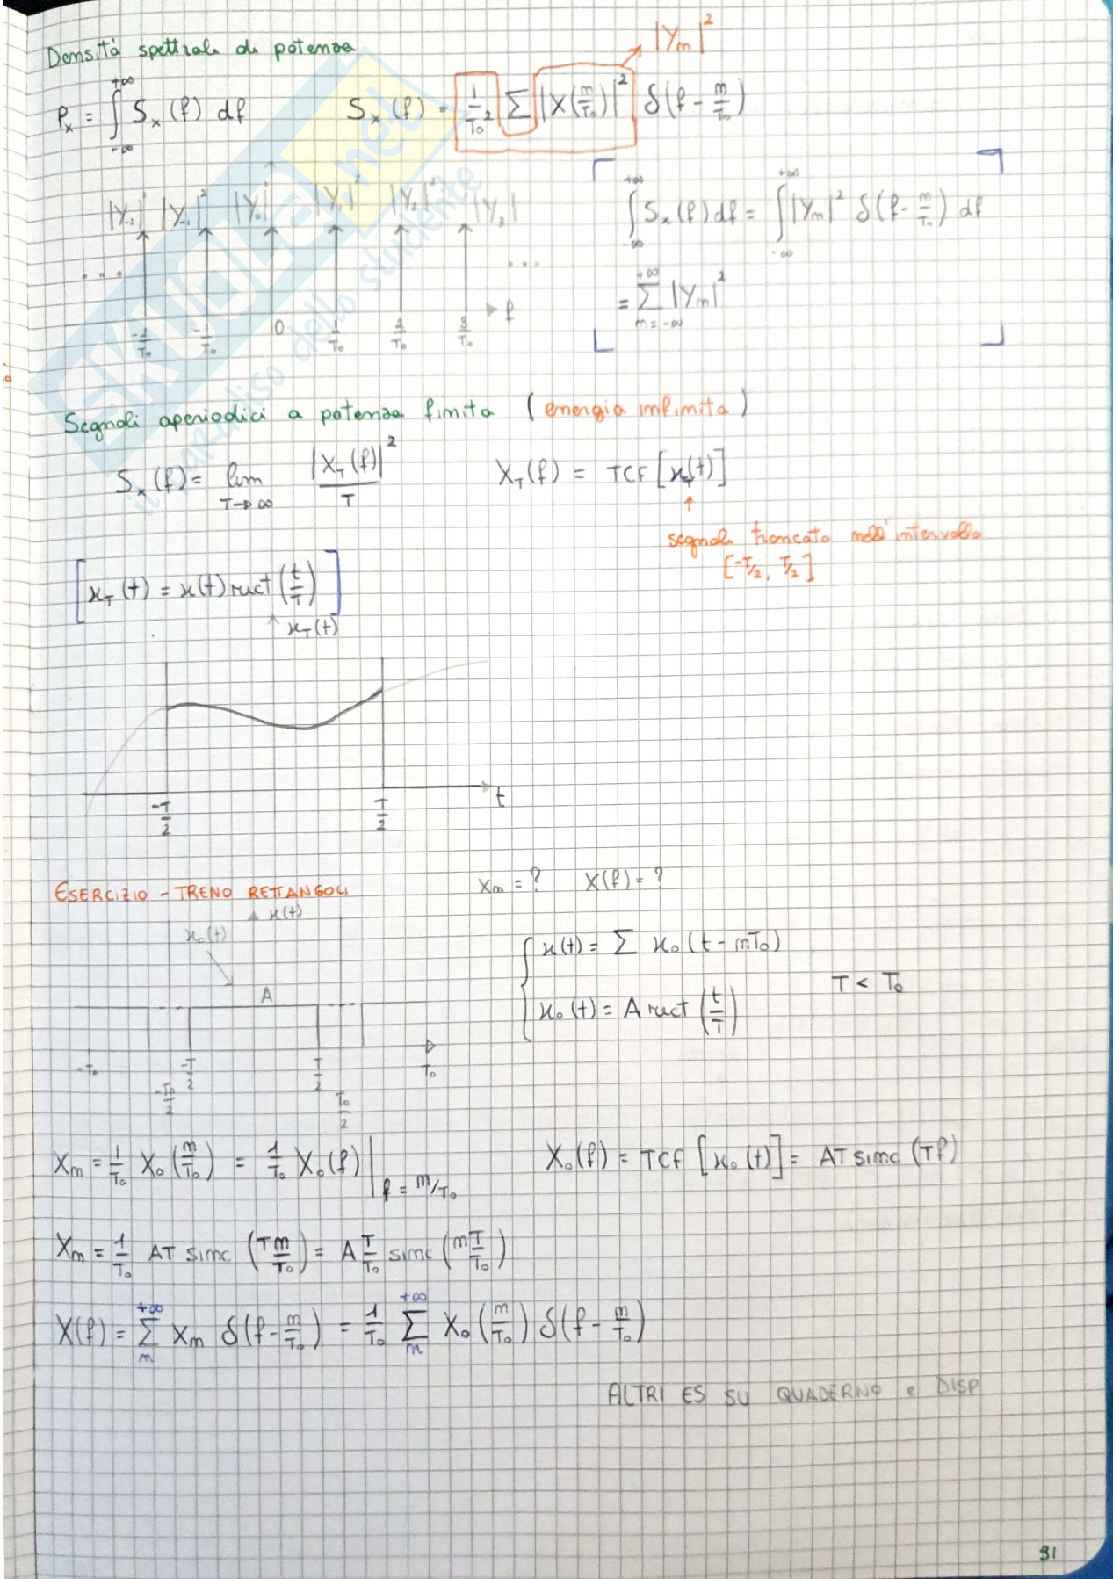 Densità spettrale di potenza
|Y_m|²
P_x = ∫_{-∞}^{+∞} S_x(f) df    S_x(f) = 1/T_0² Σ |X(m/T_0)|² δ(f - m/T_0)
|Y_-2|² |Y_-1|² |Y_0|² |Y_1|² |Y_2|² |Y_3|
... ...
-2/T_0  -1/T_0  0  1/T_0  2/T_0  3/T_0  f
∫_{-∞}^{+∞} S_x(f) df = ∫_{-∞}^{+∞} |Y_m|² δ(f - m/T_0) df
= Σ_{m=-∞}^{+∞} |Y_m|²
Segnali aperiodici a potenza finita (energia infinita)
S_x(f) = lim_{T→∞} |X_T(f)|²/T    X_T(f) = TCF [x_T(t)]
segnale troncato nell'intervallo
[-T/2, T/2]
[x_T(t) = x(t) rect(t/T)]
x_T(t)
-T/2  T/2  t
ESERCIZIO - TRENO RETTANGOLI    X_m = ?    X(f) = ?
x(t)
x_0(t)
A
-T_0  -T_0/2  -T/2  T/2  T_0/2  T_0
x(t) = Σ x_0(t - mT_0)
x_0(t) = A rect(t/T)    T < T_0
X_m = 1/T_0 X_0(m/T_0) = 1/T_0 X_0(f)|_{f = m/T_0}    X_0(f) = TCF [x_0(t)] = AT sinc(Tf)
X_m = 1/T_0 AT sinc(T m/T_0) = A T/T_0 sinc(m T/T_0)
X(f) = Σ_m^{+∞} X_m δ(f - m/T_0) = 1/T_0 Σ_m^{+∞} X_0(m/T_0) δ(f - m/T_0)
ALTRI ES SU QUADERNO e DISP
31
SKUOLA.net
il paradiso dello studente